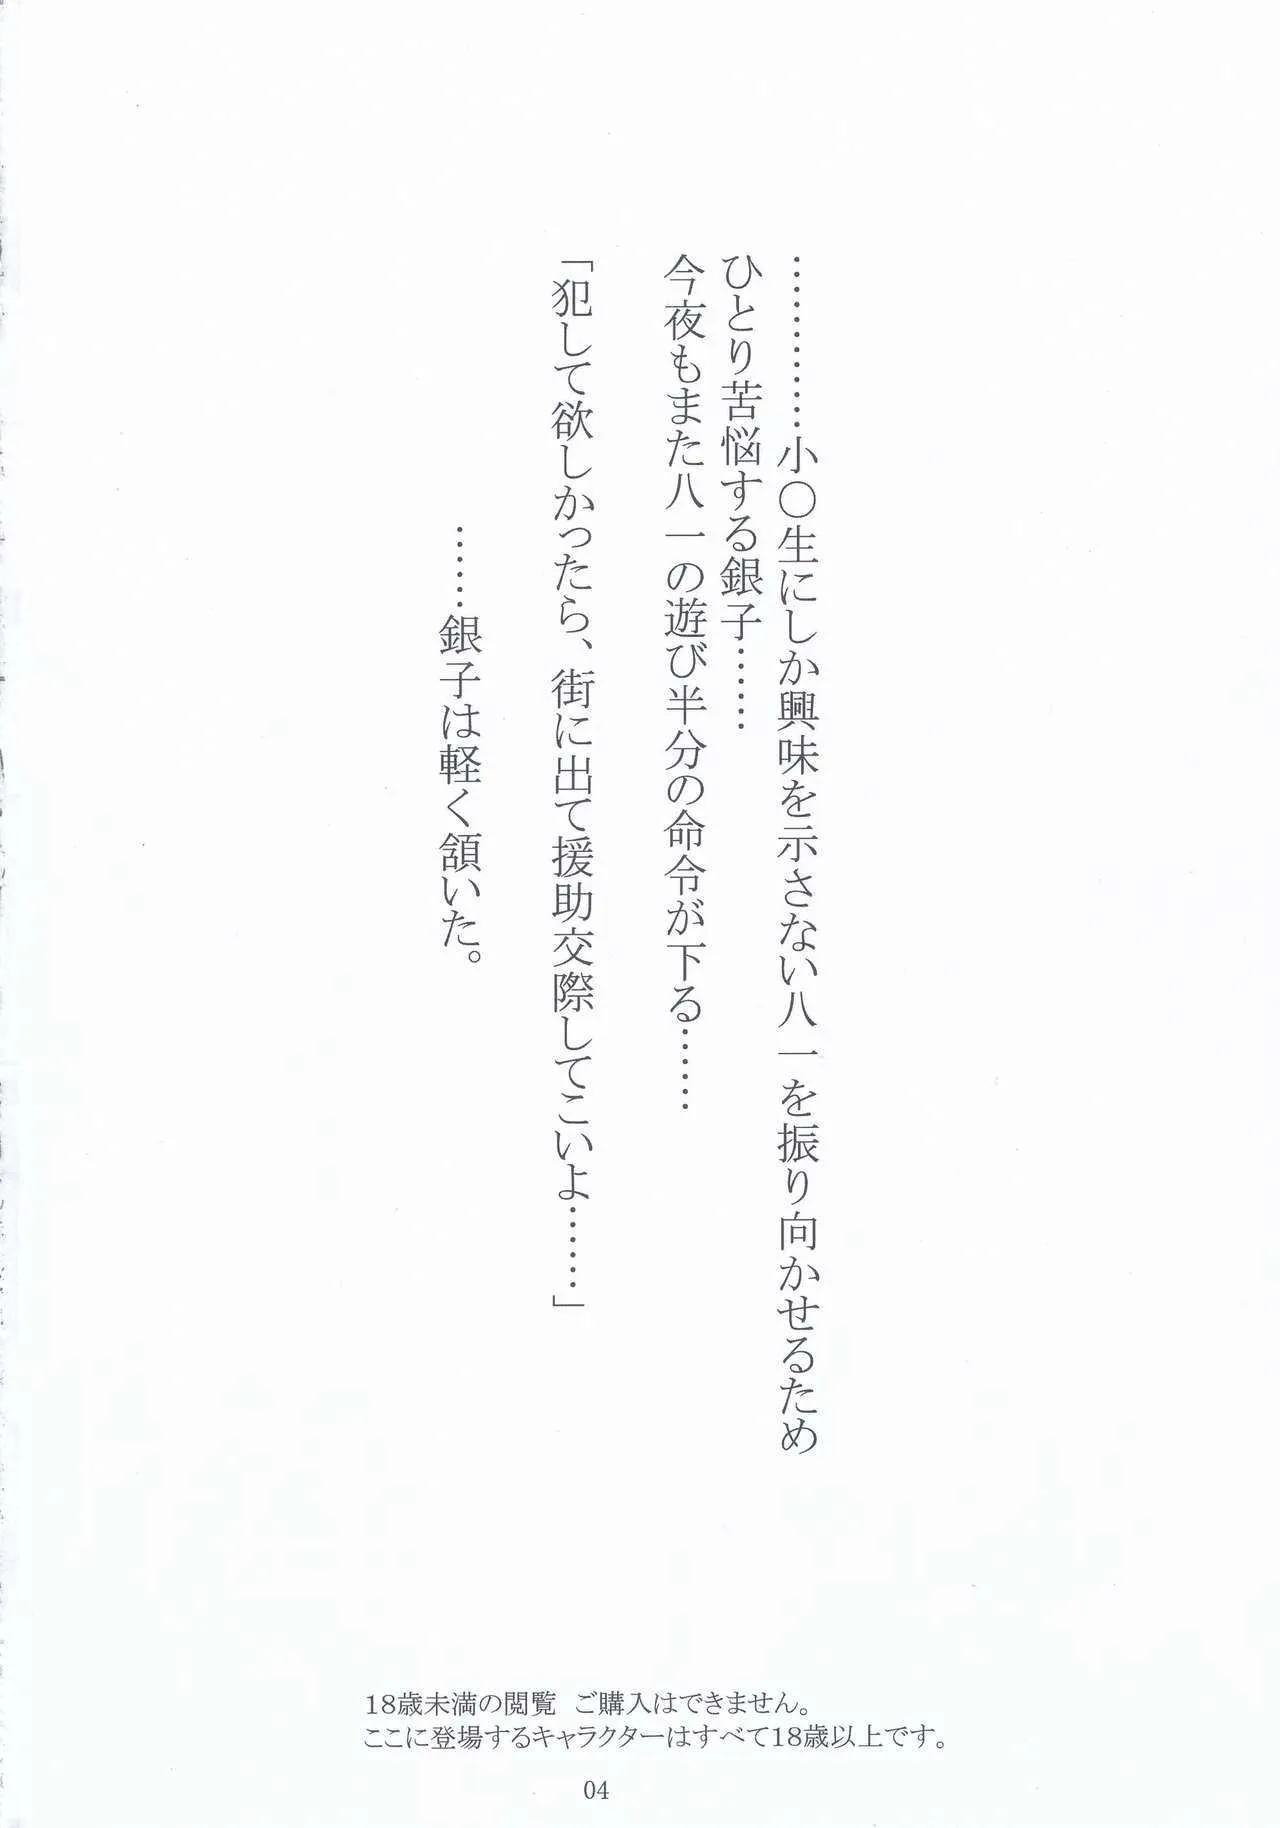 …………小〇生にしか興味を示さない八一を振り向かせるため
ひとり苦悩する銀子……
今夜もまた八一の遊び半分の命令が下る……
「犯して欲しかったら、街に出て援助交際してこいよ……」
……銀子は軽く頷いた。
18歳未満の閲覧 ご購入はできません。
ここに登場するキャラクターはすべて18歳以上です。
04